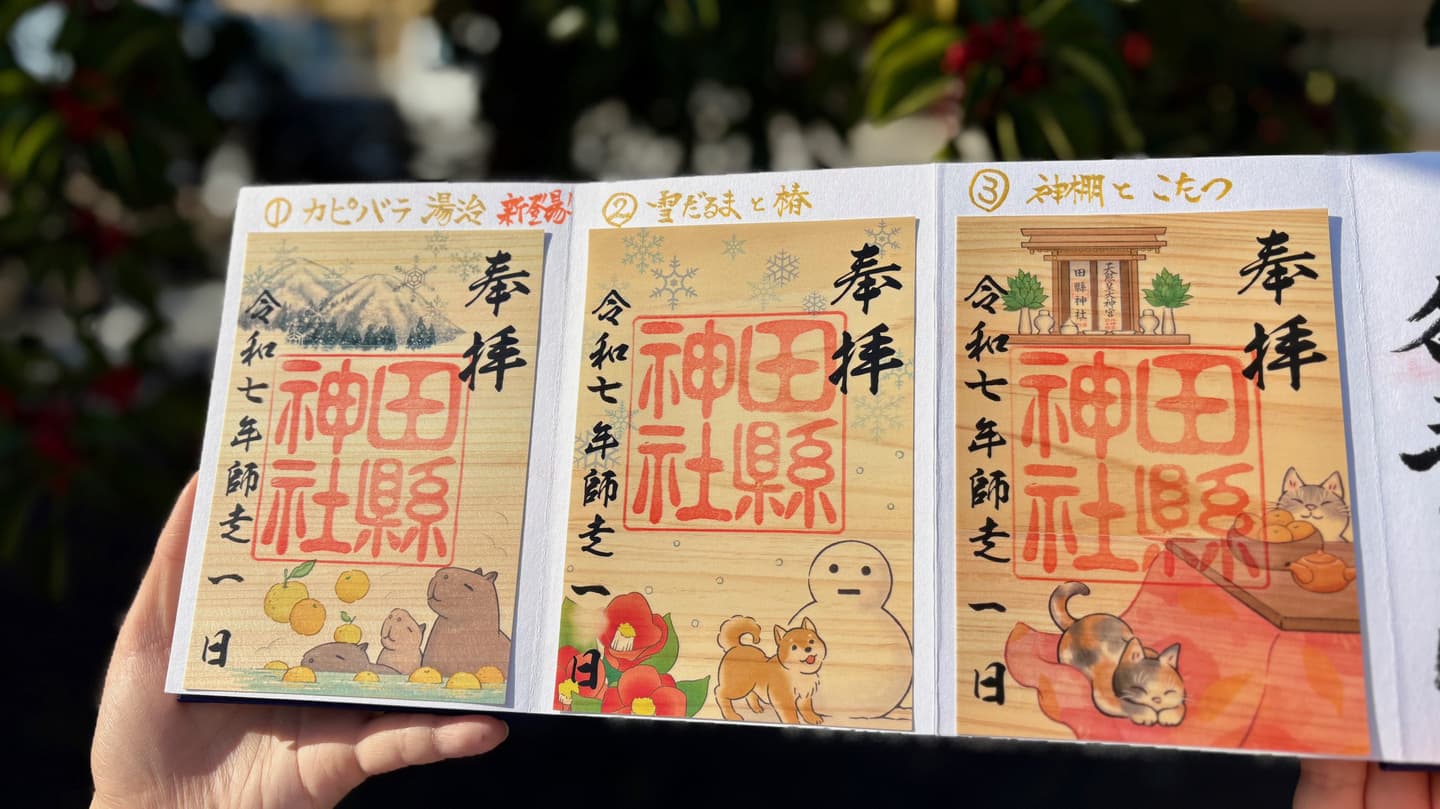 ① カピバラ 湯治 新登場!
奉拝
田縣
神社
令和七年師走一日
② 雪だるまと椿
奉拝
田縣
神社
令和七年師走一日
③ 神棚と こたつ
奉拝
天照皇大神宮
田縣神社
田縣
神社
令和七年師走一日